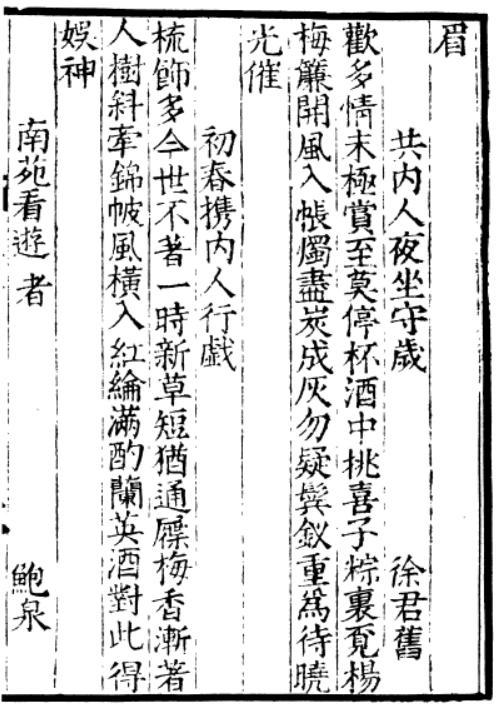 眉
共内人夜坐守歲　徐君舊
歡多情未極賞至莫停杯酒中挑喜子粽裏覔楊
梅簾開風入帳燭盡炭成灰勿疑鬂釵重爲待曉
光催
初春携内人行戲
梳飾多今世不著一時新草短猶通屧梅香漸著
人樹斜牽錦帔風橫入紅綸滿酌蘭英酒對此得
娛神
南苑看遊者　鮑泉